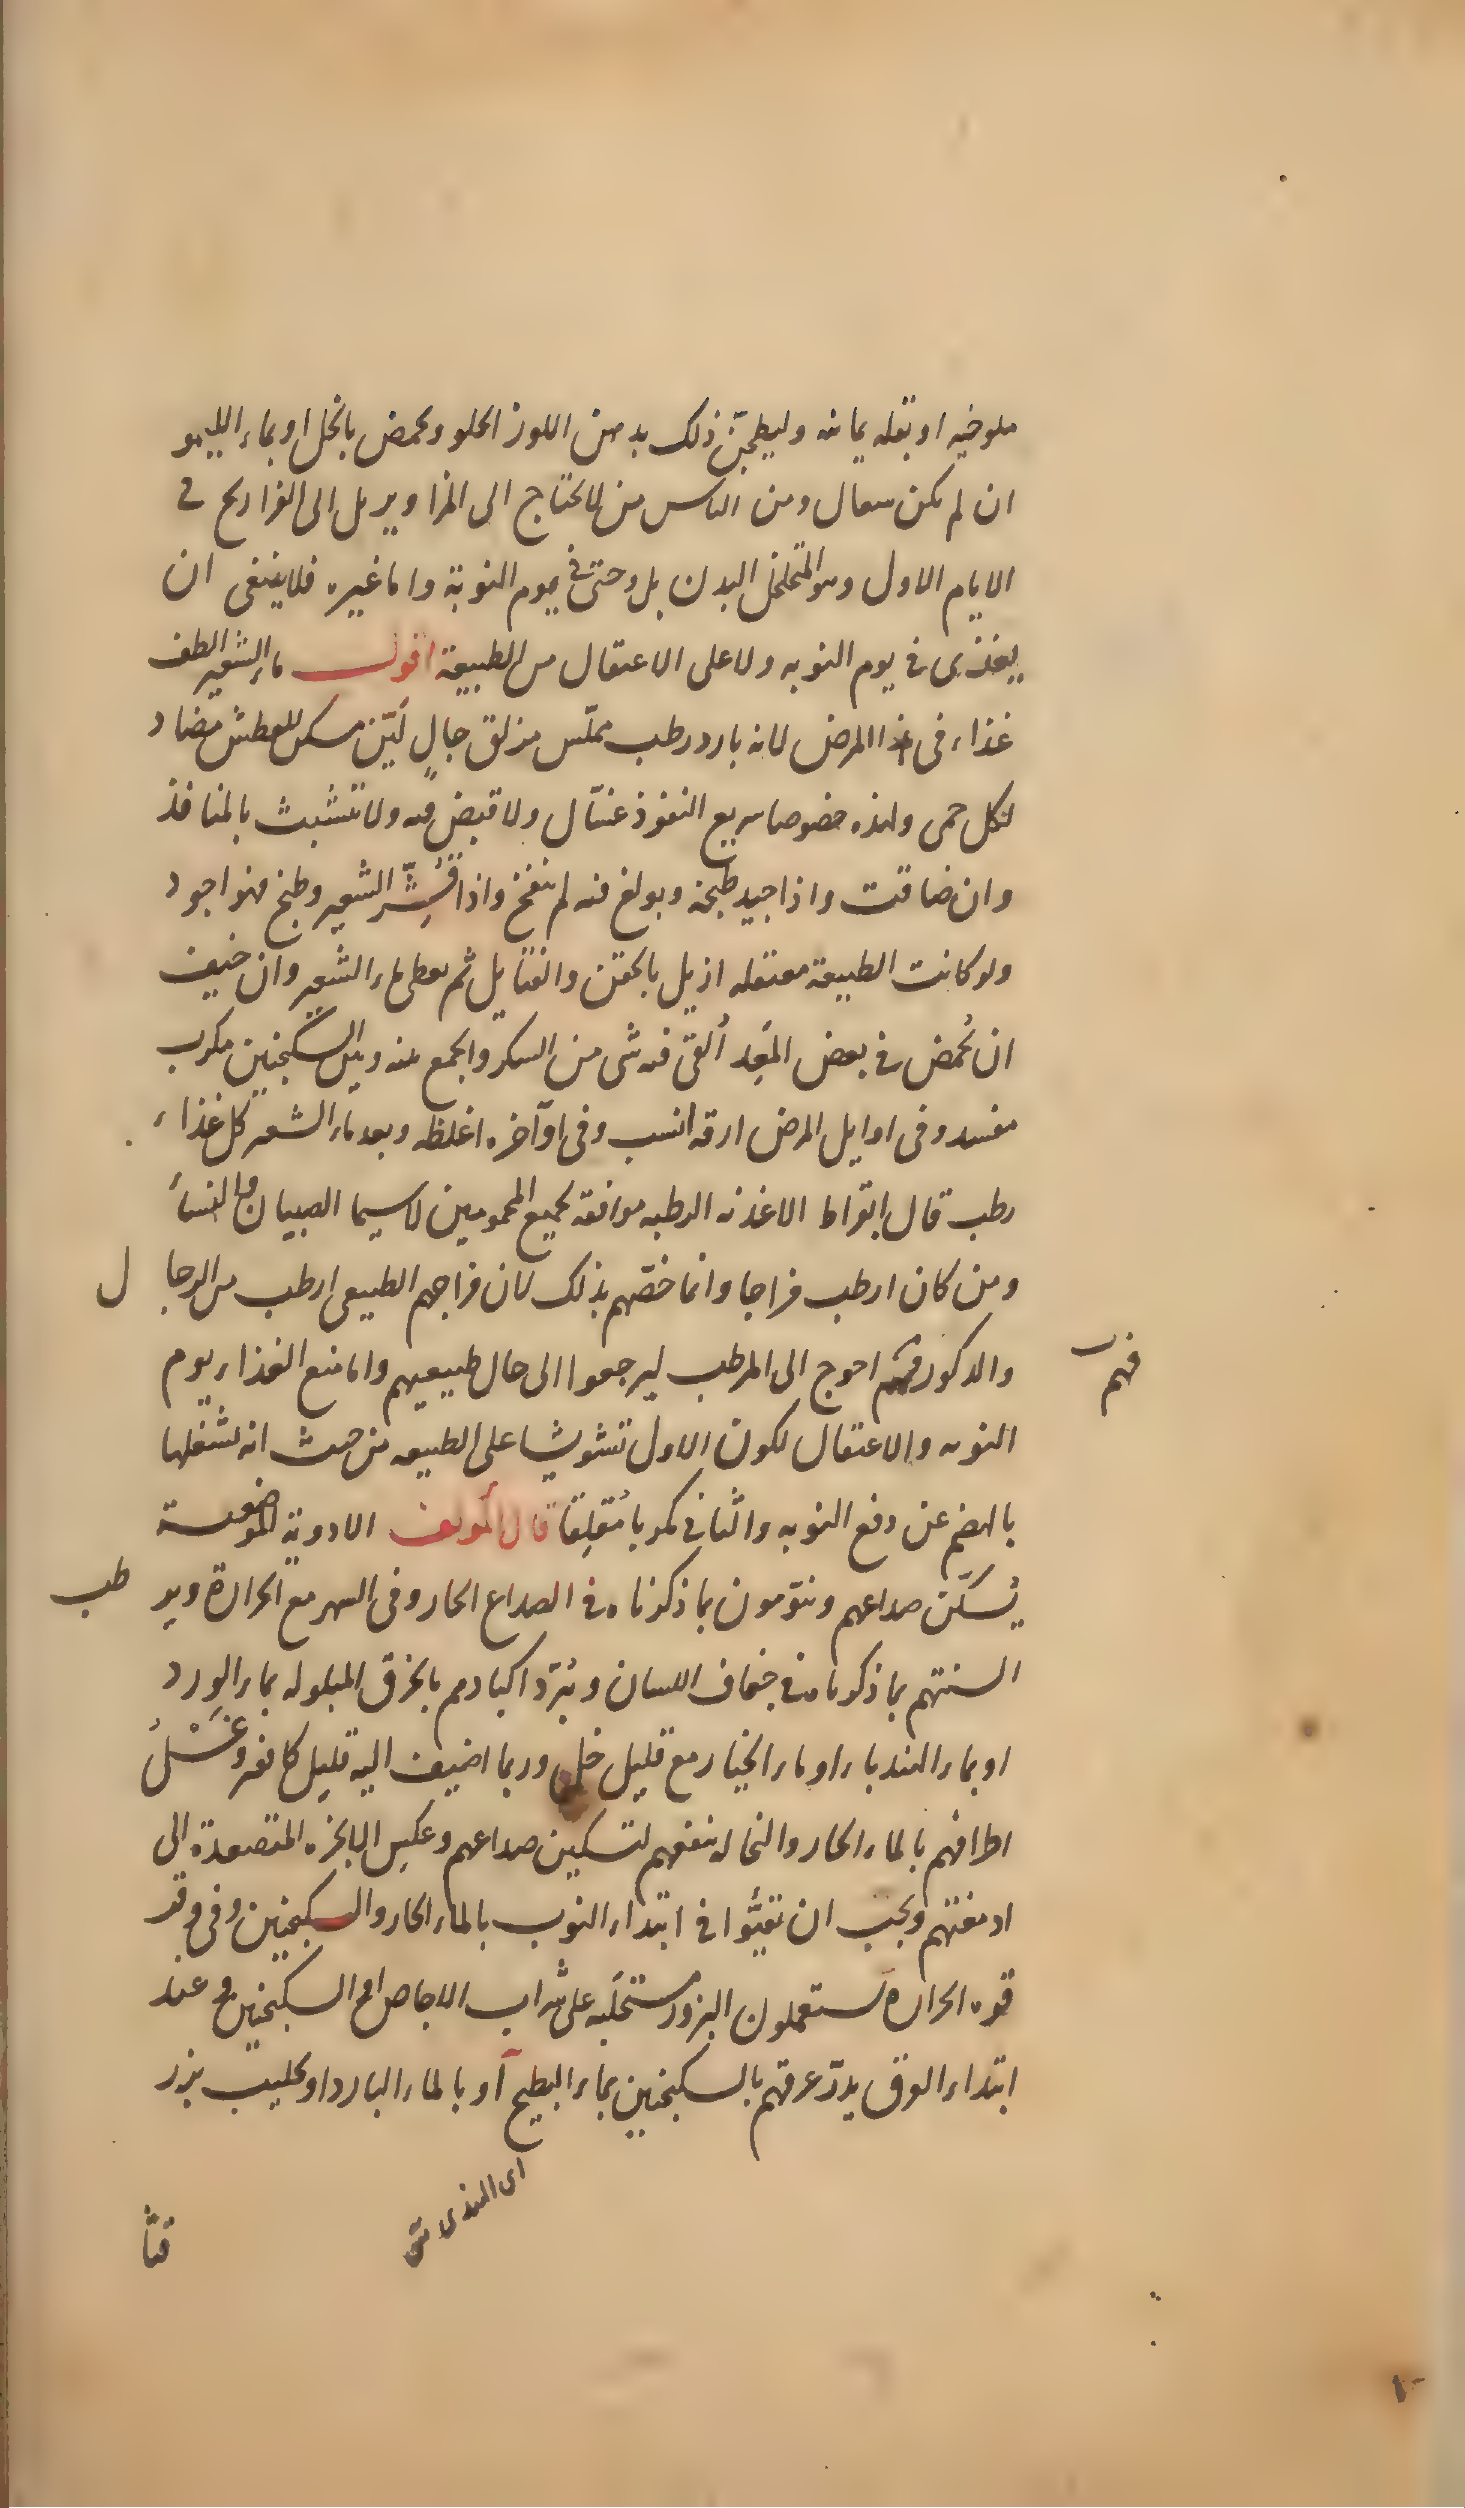 ملوخيه او بقله يمانيه وليطجّن ذلك بدهن اللوز الحلو ويحمض بالخل او بماء الليمو
ان لم يكن سعال ومن الناس من لا يحتاج الى المزاوير بل الى الفراريج في
الايام الاول وهو المتخلخل البدن بل وحتى في يوم النوبة واما غيره فلا ينبغى ان
يغذى في يوم النوبه ولا على الاعتقال من الطبيعة اقول ماء الشعير الطف
غذاء في هذا المرض لانه بارد رطب مملّس مزلق جالٍ ليّن مسكن للعطش مضاد
لكل حمى ولهذه خصوصا سريع النفوذ غسّال ولا قبض فيه ولا تتشبث بالمنافذ
وان ضاقت واذا جيد طبخه وبولغ فيه لم ينفخ واذا قُشِّر الشعير وطبخ فهو اجود
ولو كانت الطبيعة معتقله ازيل بالحقن والفتايل ثم يعطى ماء الشعير وان خيف
ان يُحمض في بعض المَعِد أُلقى فيه شى من السكر والجمع بينه وبين السكنجبين مكرب
مفسد وفى اوايل المرض ارقه انسب وفى اواخره اغلظه وبعد ماء الشعير كل غذاء
رطب قال ابقراط الاغذيه الرطبه موافقة لجميع المحمومين لا سيما الصبيان والنساء
ومن كان ارطب مزاجا وانما خصّهم بذلك لان مزاجهم الطبيعى ارطب من الرجا ل
والذكور فهم احوج الى المرطب ليرجعوا الى حال طبيعيهم واما منع الغذاء يوم
فهم
النوبه والاعتقال لكون الاول تشويشا على الطبيعه من حيث انه يشغلها
بالهضم عن دفع النوبه والثانى مكربا مُقلِقا قال المولف الادوية الموضعية
يُسكّن صداعهم وينوّمون بما ذكرناه في الصداع الحار وفى السهر مع الحرارة وير طب
السنتهم بما ذكرناه في جفاف اللسان ويُبرّد اكبادهم بالخرق المبلوله بماء الورد
او بماء الهندباء او ماء الخيار مع قليل خل وربما اضيف اليه قليل كافور وغَسْلُ
اطرافهم بالماء الحار والنخاله ينفعهم لتسكين صداعهم وعكسِ الابخره المتصعدة الى
ادمغتهم ويجب ان يقيّؤا في ابتداء النوب بالماء الحار والسكنجبين وفى وقت
قوه الحراره يستعملون البزور مستحلَبه على شراب الاجاص او السكنجبين وعند
ابتداء العرق يدرّ عرقهم بالسكنجبين بماء البطيخ او بالماء البارد او بحليب بزر
اى الهندى
قثا